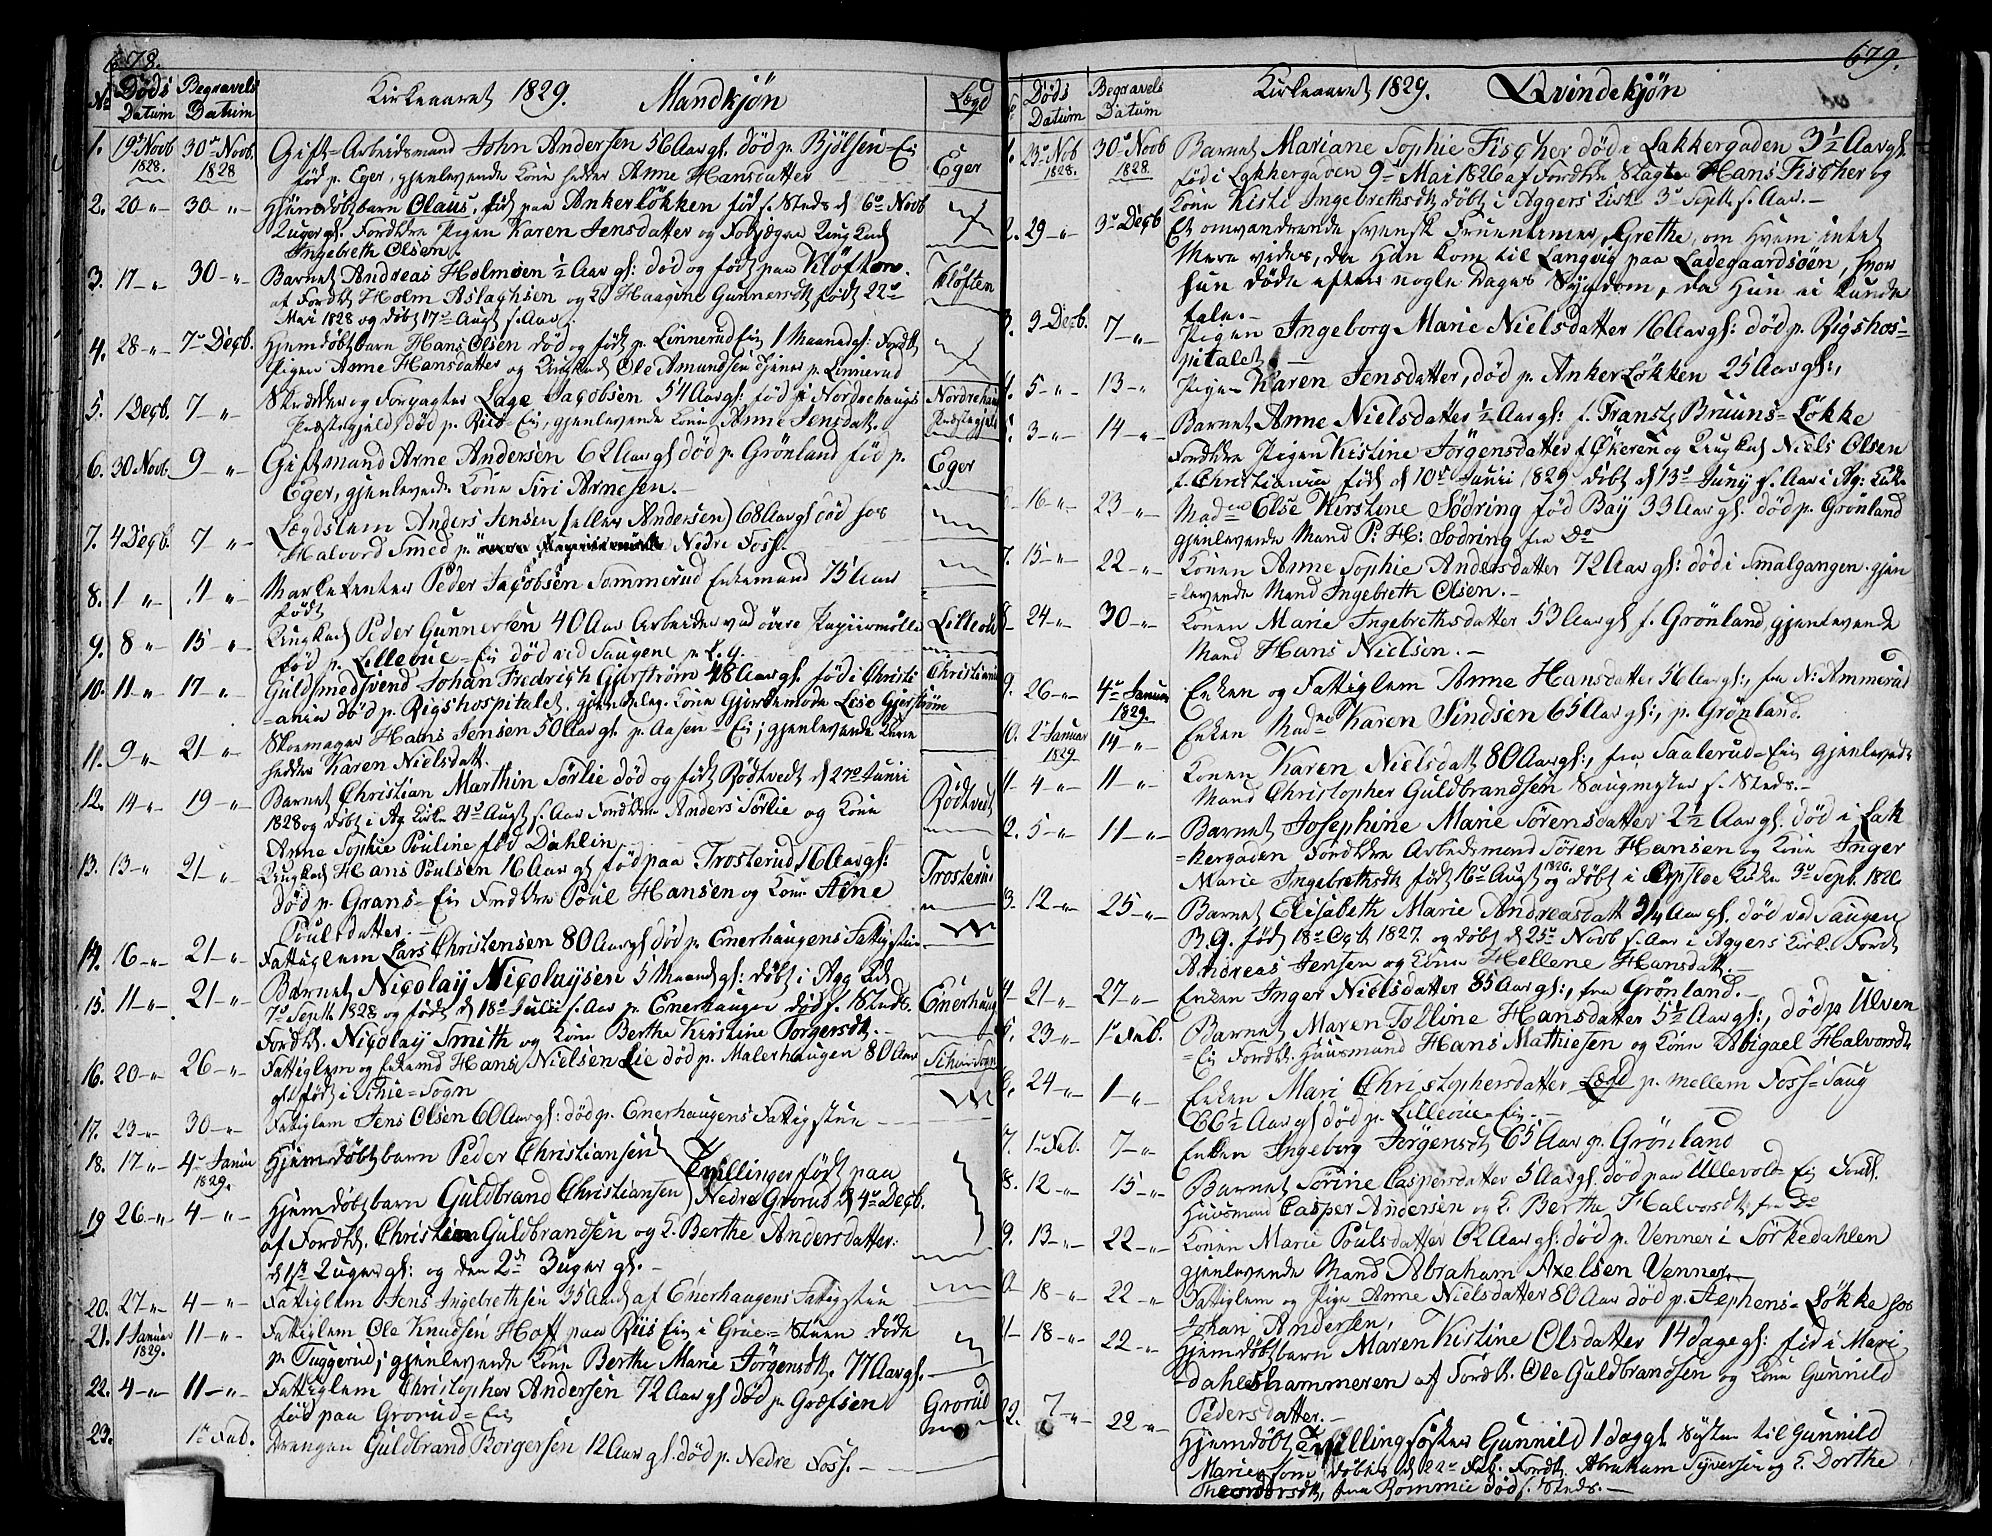 678.
No Døds Datum Begravels Datum Kirkeaaret 1829. Mandkjøn Lægd
1. 19de Novb 1828. 30te Novb. 1828 Gift Arbeidsmand John Andersen 56 Aar gl. død p. Bjølsen Ei
født p. Eger, gjenlevende Kone hedder Anne Hansdatter Eger
2. 20 " 30 " Hjemdøbt barn Olaus, født paa Ankerløkken født s. Steds d 6te Novb
Forældre Pigen Karen Jensdatter og Ungkarl
Ingebreth Olsen.
3. 17 " 30 " Barnet Andreas Holmsen ½ Aar gl: død og født paa Kløften. Kløften
af Forældre Holm Aslachsen og K Haagine Gunnersdtr født 22de
Mai 1828 og døbt 17de Augt s. Aar.
4. 28 " 7de Decb. Hjemdøbt barn Hans Olsen død og født p. Linnerud Ei 1 Maaned gl: Fordl.
Pigen Anne Hansdatter og Ungkarl Ole Amundsen tjener p. Linnerud
5. 1 Decb. 7 " Skredder og Forpagter Lage Jacobsen 54 Aar gl. født i Nordrehaugs
Præstegjeld, død p. Riis Ei, gjenlevende Kone Anne Jensdatt. Nordrehaugs Præstegjeld
6. 30 Novb. 9 " Gift mand Arne Andersen 62 Aar gl død p. Grønland født p.
Eger, gjenlevende Kone Siri Arnesen. Eger
7. 4 Decb. 7 " Lægdslem Anders Jensen (eller Andersen) 68 Aar gl død hos
Halvord Smed p. Nedre Foss.
8. 1 " 11 " Marketenter Peder Jacobsen Sommerud Enkemand 75 Aar
født
9. 8 " 15 " Ungkarl Peder Gunnersen 40 Aar Arbeider ved øvre Papiirmølle
født p. Lillevue Ei død ved Saugene Lillevue
10. 11 " 17 " Guldsmedsvend Johan Fredrich Gjerstrøm 48 Aar gl. født i Christi
ania død p. Rigshospitalet, gjenleve. Kone Gjordemode Lise Gjerstrøm Christiania
11. 9 " 21 " Skomager Hans Jensen 50 Aar gl p. Aasen Ei; gjenlevende Kone
hedder Karen Nielsdatt.
12. 14 " 19 " Barnet Christian Marthin Sørlie død og født Rødtvedt d 27de Junii
1828 og døbt i Ag Kirke 24de Augt s. Aar Forældre Anders Sørlie og Kone
Anne Sophie Pouline født Dahlin Rødtvedt
13. 13 " 21 " Ungkarl Hans Poulsen 16 Aar gl født paa Trosterud, 16 Aar gl:
død p. Grans Ei Forældre Poul Hansen og Kone Stine
Poulsdatter. Trosterud
14. 16 " 21 " Fattiglem Lars Christensen 80 Aar gl død p. Enerhaugens Fattigstue
15. 11 " 21 " Barnet Nicolay Nicolaysen 5 Maaned gl: døbt i Agg Kirke
7de Septb 1828 og født d 18de Julii s. Aar p. Enerhaugen død s. Steds.
Fordl. Nicolay Smith og Kone Berthe Kirstine Torgersdt. Enerhaug
16. 20 " 26 " Fattiglem og Enkemd Hans Nielsen Lie død p. Malerhaugen 80 Aar
gl født i Schie Sogn
17. 23 " 30 " Fattiglem Jens Olsen 60 Aar gl: død p. Enerhaugens Fattigstue
18. 17 " 4de Janu 1829. Hjemdøbt barn Peder Christiansen Tvillinger født paa
19 26 " 4 " Hjemdøbt barn Guldbrand Christiansen Nedre Grorud d 4de Decb.
af Fordl. Christian Guldbrandsen og K. Berthe Andersdatter.
d 1ste 2 Uger gl: og den 2den 3 uger gl.
20. 27 " 4 " Fattiglem Jens Ingebrethsen 35 Aar af Enerhaugens Fattigstue
21. 1 Januar 1829. 11 " Fattiglem Ole Knudsen Hoff paa Riis Ei i Grue Stuen døde
p. Tuggerud; gjenlevende Kone Berthe Marie Jørgensdt. 77 Aar gl.
22. 4 " 11 " Fattiglem Christopher Andersen 72 Aar gl død p. Grefsen
født paa Grorud Ei Grorud
23. 1ste Feb. Drengen Guldbrand Borgersen 12 Aar gl. død p. Nedre Foss.
679.
Døds Datum Begravels Datum Kirkeaaret 1829. Qvindekjøn
1. 23de Nov 1828. 30te Novb 1828. Barnet Mariane Sophie Fischer død i Lakkergaden 3½ Aar gl.
født i Lakkergaden 9de Mai 1826 af Forældre Slagter Hans Fischer og
Kone Kisti Ingebrethsdtr døbt i Aggers Kirke 3de Septb s. Aar.
2. 29 " 3de Decb Et omvandrende svensk Fruentimmer, Grethe, om hvem intet
mere vides, da hun kom til Langvig paa Ladegaardsøen, hvor
hun døde efter nogle Dages Sygdom, da hun ei kunde
tale.
3. 3 Decb. 7 " Pigen Ingeborg Marie Nielsdatter 16 Aar gl: død p. Rigshos-
pitalet.
4. 5 " 13 " Pigen Karen Jensdatter, død p. Ankerløkken 25 Aar gl:,
3 " 14 " Barnet Anne Nielsdatter ½ Aar gl: f. Frants Bruuns Løkke
Forældre Pigen Kistine Jørgensdatter f Økeren og Ungkarl Niels Olsen
f. Christiania født d 10de Junii 1829 døbt d 13de Juny s. Aar i Ag: Kirke
16 " 23 " Madme Else Kirstine Sødring født Bay 33 Aar gl. død p. Grønland
gjenlevende Mand P: H: Sødring fra Do
7. 15 " 22 " Konen Anne Sophie Andersdatter 72 Aar gl: død i Smalgangen gjen
levende Mand Ingebreth Olsen.
8. 24 " 30 " Konen Marie Ingebrethsdatter 53 Aar gl f. Grønland, gjenlevende
Mand Hans Nielsen.
9. 26 " 4de Januar 1829. Enken og Fattiglem Anne Hansdatter 56 Aar gl:, fra N: Ammerud
10. 2de Januar 1829 14 " Enken Madme Karen Sindsen 65 Aar gl:, p. Grønland.
11. 4 " 11 " Konen Karen Nielsdatt 80 Aar gl:, fra Taalerud Ei gjenlevend
Mand Christopher Guldbrandsen Saugmester s. Steds.
12. 5 " 11 " Barnet Josephine Marie Sørensdatter 2½ Aar gl. død i Lak
kergaden Forældre Arbeidsmand Søren Hansen og Kone Inger
Marie Ingebrethsdtr født 16de Augt 1826 og døbt i Opsloe Kirke 3de Sept. 1826
13. 12 " 25 " Barnet Elisabeth Marie Andreasdatt 3/4 Aar gl. død ved Saugen
B.G. født 18de Octb 1827. og døbt d 25de Novb s. Aar i Aggers Kirk. Fordl
Andreas Jensen og Kone Hellene Hansdatt.
14 21 " 27 " Enken Inger Nielsdatter 85 Aar gl:, fra Grønland.
15. 23 " 1ste Feb. Barnet Maren Tolline Hansdatter 5½ Aar gl:, død p Ulven
Ei Fordl. Huusmand Hans Mathiesen og Kone Abigael Halvorsdt
16. 24 " 1 " Enken Mari Christophersdatter Lægd p. mellem Foss Saug
66½ Aar gl død p. Lillevue Ei.
17. 1ste Feb. 7 " Enken Ingeborg Jørgensdt 65 Aar p. Grønland
18. 12 " 15 " Barnet Sørine Caspersdatter 5 Aar gl. død paa Ullevold Ei Fordl.
Huusmand Casper Andersen og K Berthe Halvorsdtr fra Do
19. 13 " 22 " Konen Marie Poulsdatter 62 Aar gl: død p. Venner i Sørkedahlen
gjenlevende Mand Abraham Axelsen Venner.
20 18 " 22 " Fattiglem og Pige Anne Nielsdatter 80 Aar død p. Stephens Løkke hos
Johan Andersen,
21 18 " 22 " Hjemdøbt barn Maren Kistine Olsdatter 14 dage gl: født i Mari
dahlshammeren af Fordl. Ole Guldbrandsen og Kone Gunnild
Pedersdatter.
22. 7 " 22 " Hjemdøbt Tvillingsøster Gunnild 1 dag gl. Søster til Gunnild
Marie, som døbtes d 22de Feb. Fordl. Abraham Syversen og K. Dorthe
Theodorsdt, fra Rommie død s. Steds.